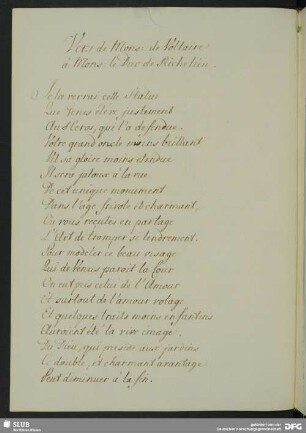 Vers de Mons. de Voltaire
à Mons. le Duc de Richelieu.
Je la verrai cette Statue
Que Genes éleve justement
Au Heros, qui l'a defendue.
Votre grand oncle moins brillant
Vit sa gloire moins etendue
Il sera jaloux à la vue
De cet unique monument
Dans l'age frivole et charmant,
On vous reçutes en partage
L'Art de tromper si tendrement.
Pour modeler ce beau visage
Qui de Venus paroit la Cour
On eut pris celui de l'Amour
Et surtout de l'amour volage
Et quelques traits moins enfantins
Auroient été la vive image
Du Dieu, qui preside aux jardins
Ce double, et charmant avantage
Peut diminuer à la fin.
SLUB
DFG